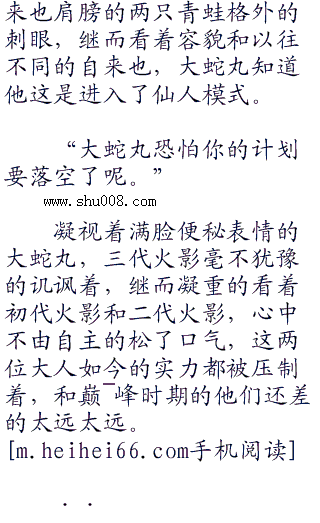 来也肩膀的两只青蛙格外的
刺眼，继而看着容貌和以往
不同的自来也，大蛇丸知道
他这是进入了仙人模式。
“大蛇丸恐怕你的计划
要落空了呢。”
www.shu008.com
凝视着满脸便秘表情的
大蛇丸，三代火影毫不犹豫
的讥讽着，继而凝重的看着
初代火影和二代火影，心中
不由自主的松了口气，这两
位大人如今的实力都被压制
着，和巅¯峰时期的他们还差
的太远太远。
[m.heihei66.com手机阅读]
．．